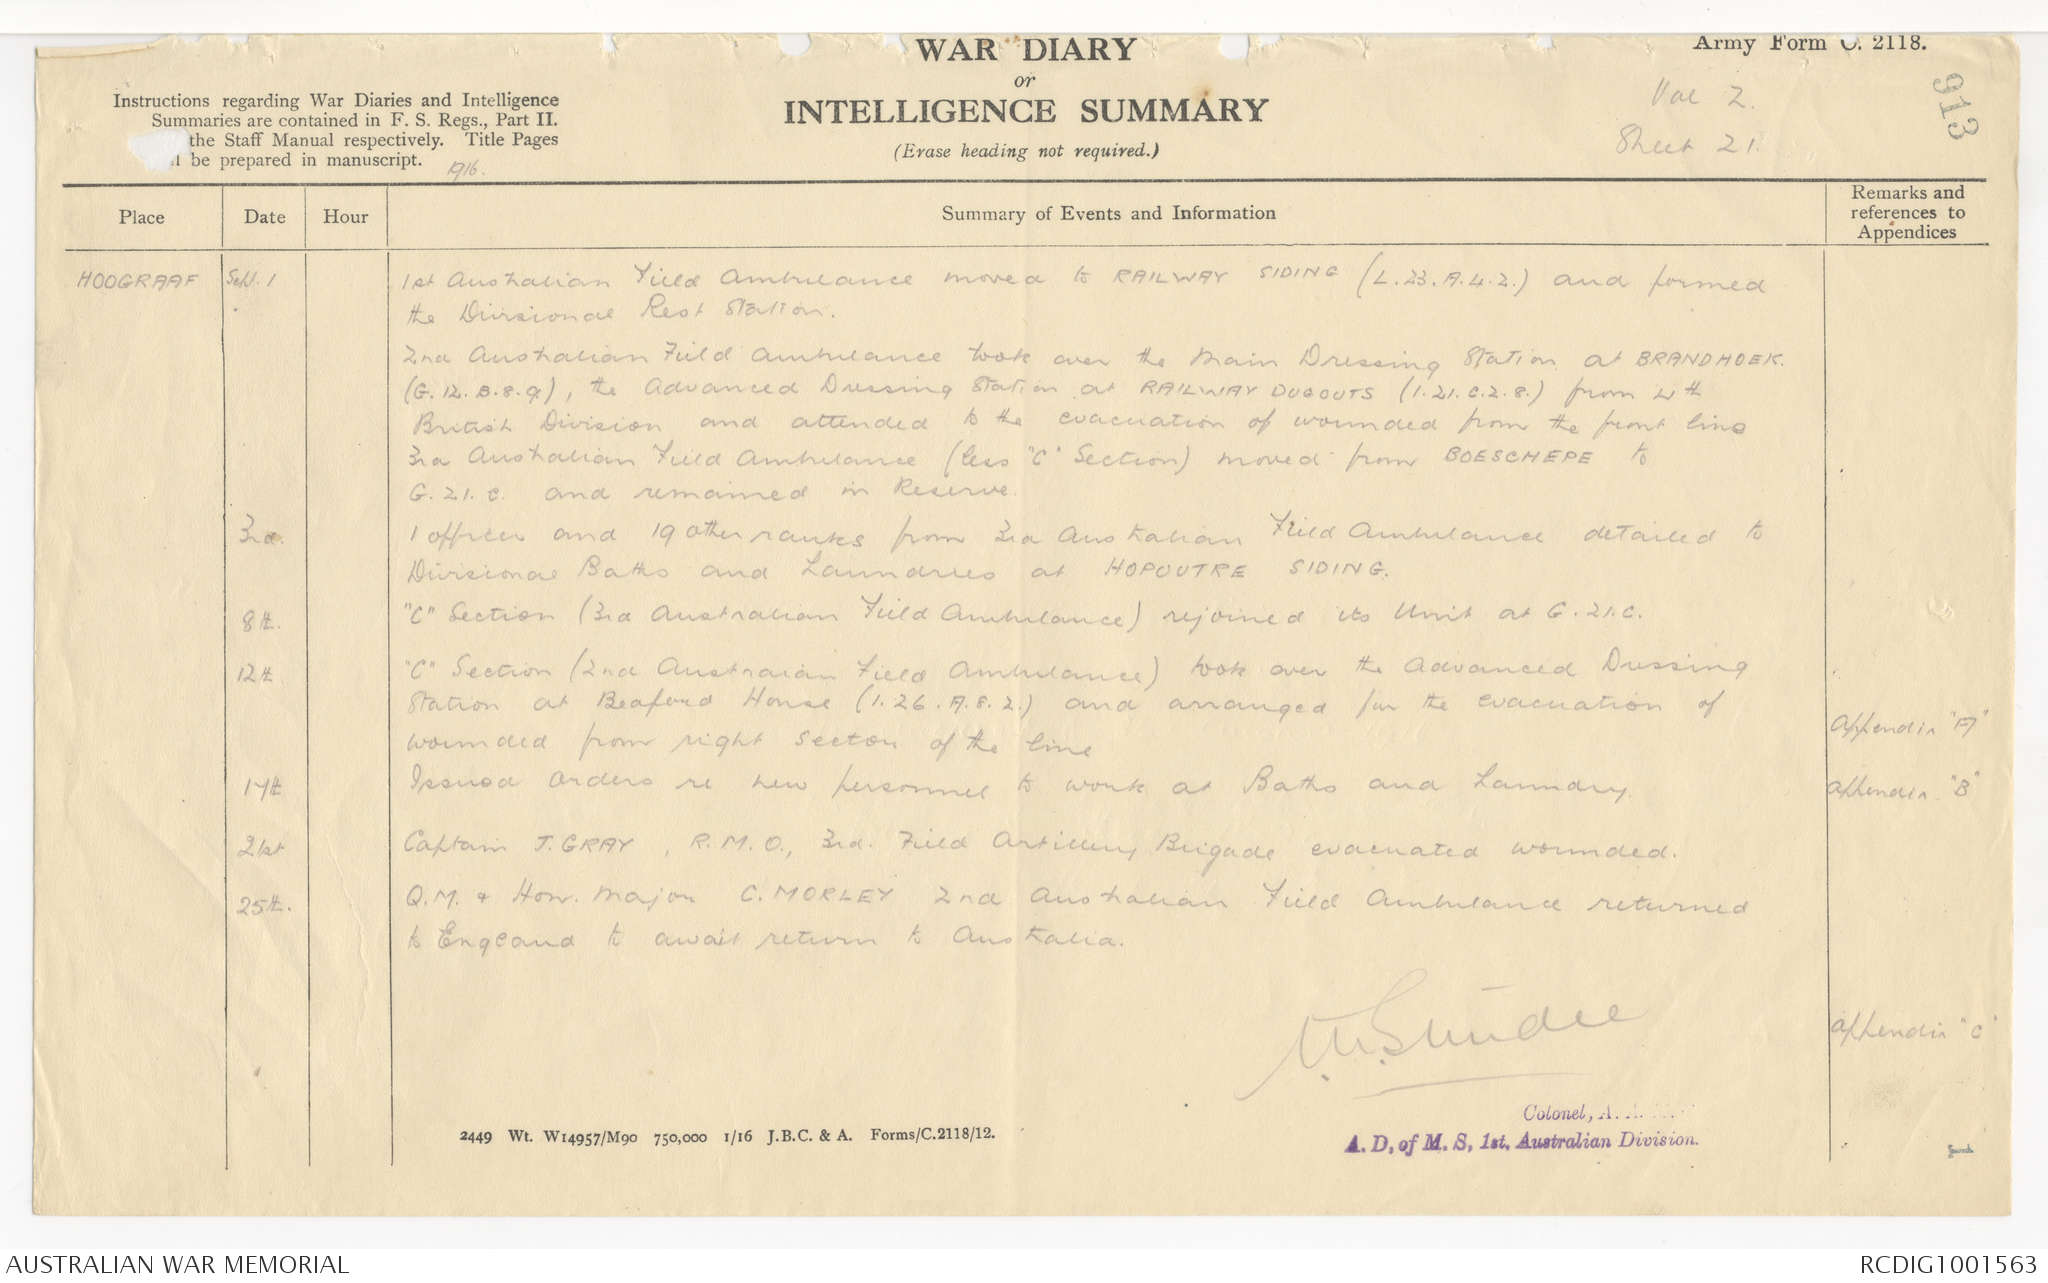 WAR DIARY
or
INTELLIGENCE SUMMARY
(Erase heading not required.)
Army Form C. 2118.
Vol 2.
Sheet 21.
913
Instructions regarding War Diaries and Intelligence
Summaries are contained in F. S. Regs., Part II.
the Staff Manual respectively. Title Pages
be prepared in manuscript.
1916.
Place
Date
Hour
Summary of Events and Information
Remarks and
references to
Appendices
HOOGRAAF Sept. 1 1st Australian Field Ambulance moved to RAILWAY SIDING (L.23.A.4.2.) and formed
the Divisional Rest Station.
2nd Australian Field Ambulance took over the Main Dressing Station at BRANDHOEK.
(G.12.B.8.9), the Advanced Dressing Station at RAILWAY DUGOUTS (I.21.C.2.8.) from 4th
British Division and attended to the evacuation of wounded from the front line
3rd Australian Field Ambulance (less "C" Section) moved from BOESCHEPE to
G.21.C. and remained in Reserve.
3rd. 1 officer and 19 other ranks from 3rd Australian Field Ambulance detailed to
Divisional Baths and Laundries at HOPOUTRE SIDING.
8th. "C" Section (3rd Australian Field Ambulance) rejoined its Unit at G.21.C.
12th "C" Section (2nd Australian Field Ambulance) took over the Advanced Dressing
Station at Beaford House (I.26.A.8.2.) and arranged for the evacuation of
wounded from right sector of the line
Appendix "A"
17th Issued orders re new personnel to work at Baths and Laundry. Appendix "B"
21st Captain J. GRAY, R.M.O., 3rd. Field Artillery Brigade evacuated wounded.
25th. Q.M. & Hon. Major C. MORLEY 2nd Australian Field Ambulance returned
to England to await return to Australia.
Appendix "C"
Colonel, A. A.
A. D. of M. S, 1st. Australian Division.
2449 Wt. W14957/M90 750,000 1/16 J.B.C. & A. Forms/C.2118/12.
AUSTRALIAN WAR MEMORIAL
RCDIG1001563